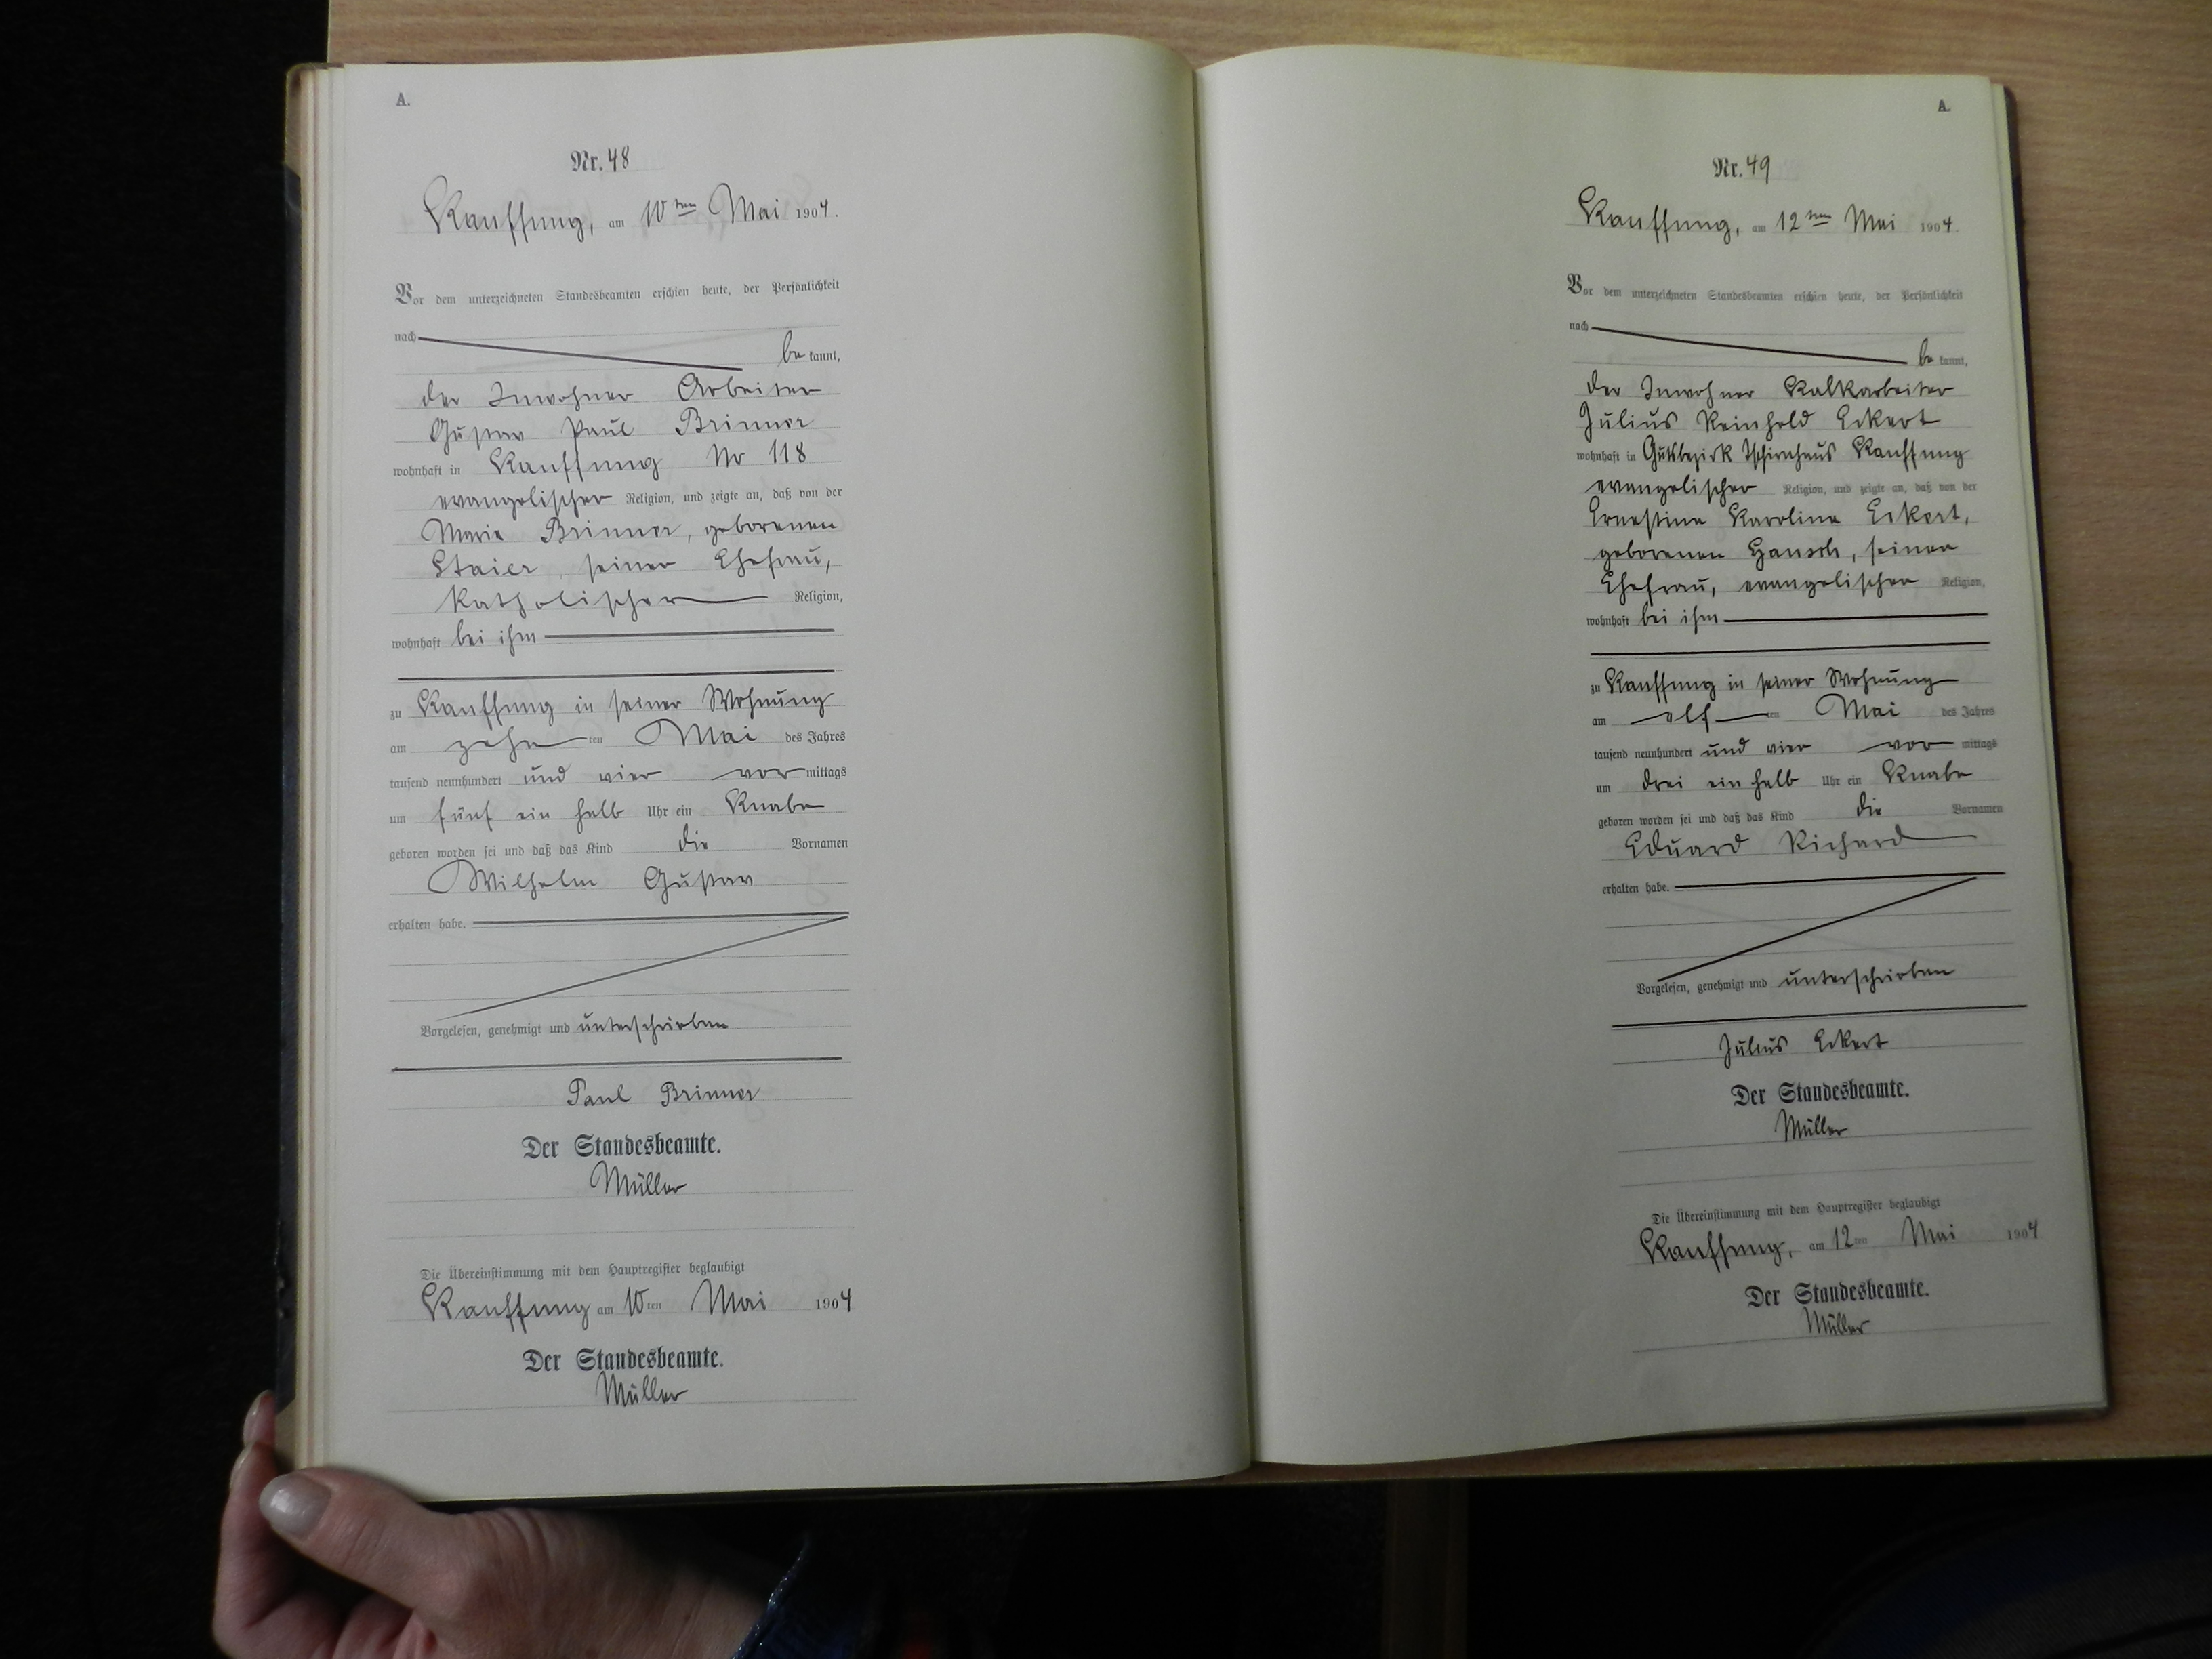 A.
Nr. 48
Kauffung, am 10ten Mai 1904.
Vor dem unterzeichneten Standesbeamten erschien heute, der Persönlichkeit
nach
be kannt,
der Inwohner Arbeiter
Gustav Paul Brinner
wohnhaft in Kauffung No 118
evangelischer Religion, und zeigte an, daß von der
Marie Brinner, geborenen
Staier, seiner Ehefrau,
katholischer Religion,
wohnhaft bei ihm
zu Kauffung in seiner Wohnung
am zehn ten Mai des Jahres
tausend neunhundert und vier vor mittags
um fünf ein halb Uhr ein Knabe
geboren worden sei und daß das Kind die Vornamen
Wilhelm Gustav
erhalten habe.
Vorgelesen, genehmigt und unterschrieben
Paul Brinner
Der Standesbeamte.
Müller
Die Übereinstimmung mit dem Hauptregister beglaubigt
Kauffung am 10ten Mai 1904
Der Standesbeamte.
Müller
A.
Nr. 49
Kauffung, am 12ten Mai 1904.
Vor dem unterzeichneten Standesbeamten erschien heute, der Persönlichkeit
nach
be kannt,
der Inwohner Kalkarbeiter
Julius Reinhold Eckert
wohnhaft in Gutsbezirk Tschirnhaus Kauffung
evangelischer Religion, und zeigte an, daß von der
Ernestine Karoline Eckert,
geborenen Hansch, seiner
Ehefrau, evangelischer Religion,
wohnhaft bei ihm
zu Kauffung in seiner Wohnung
am elf ten Mai des Jahres
tausend neunhundert und vier vor mittags
um drei ein halb Uhr ein Knabe
geboren worden sei und daß das Kind die Vornamen
Eduard Richard
erhalten habe.
Vorgelesen, genehmigt und unterschrieben
Julius Eckert
Der Standesbeamte.
Müller
Die Übereinstimmung mit dem Hauptregister beglaubigt
Kauffung, am 12ten Mai 1904
Der Standesbeamte.
Müller